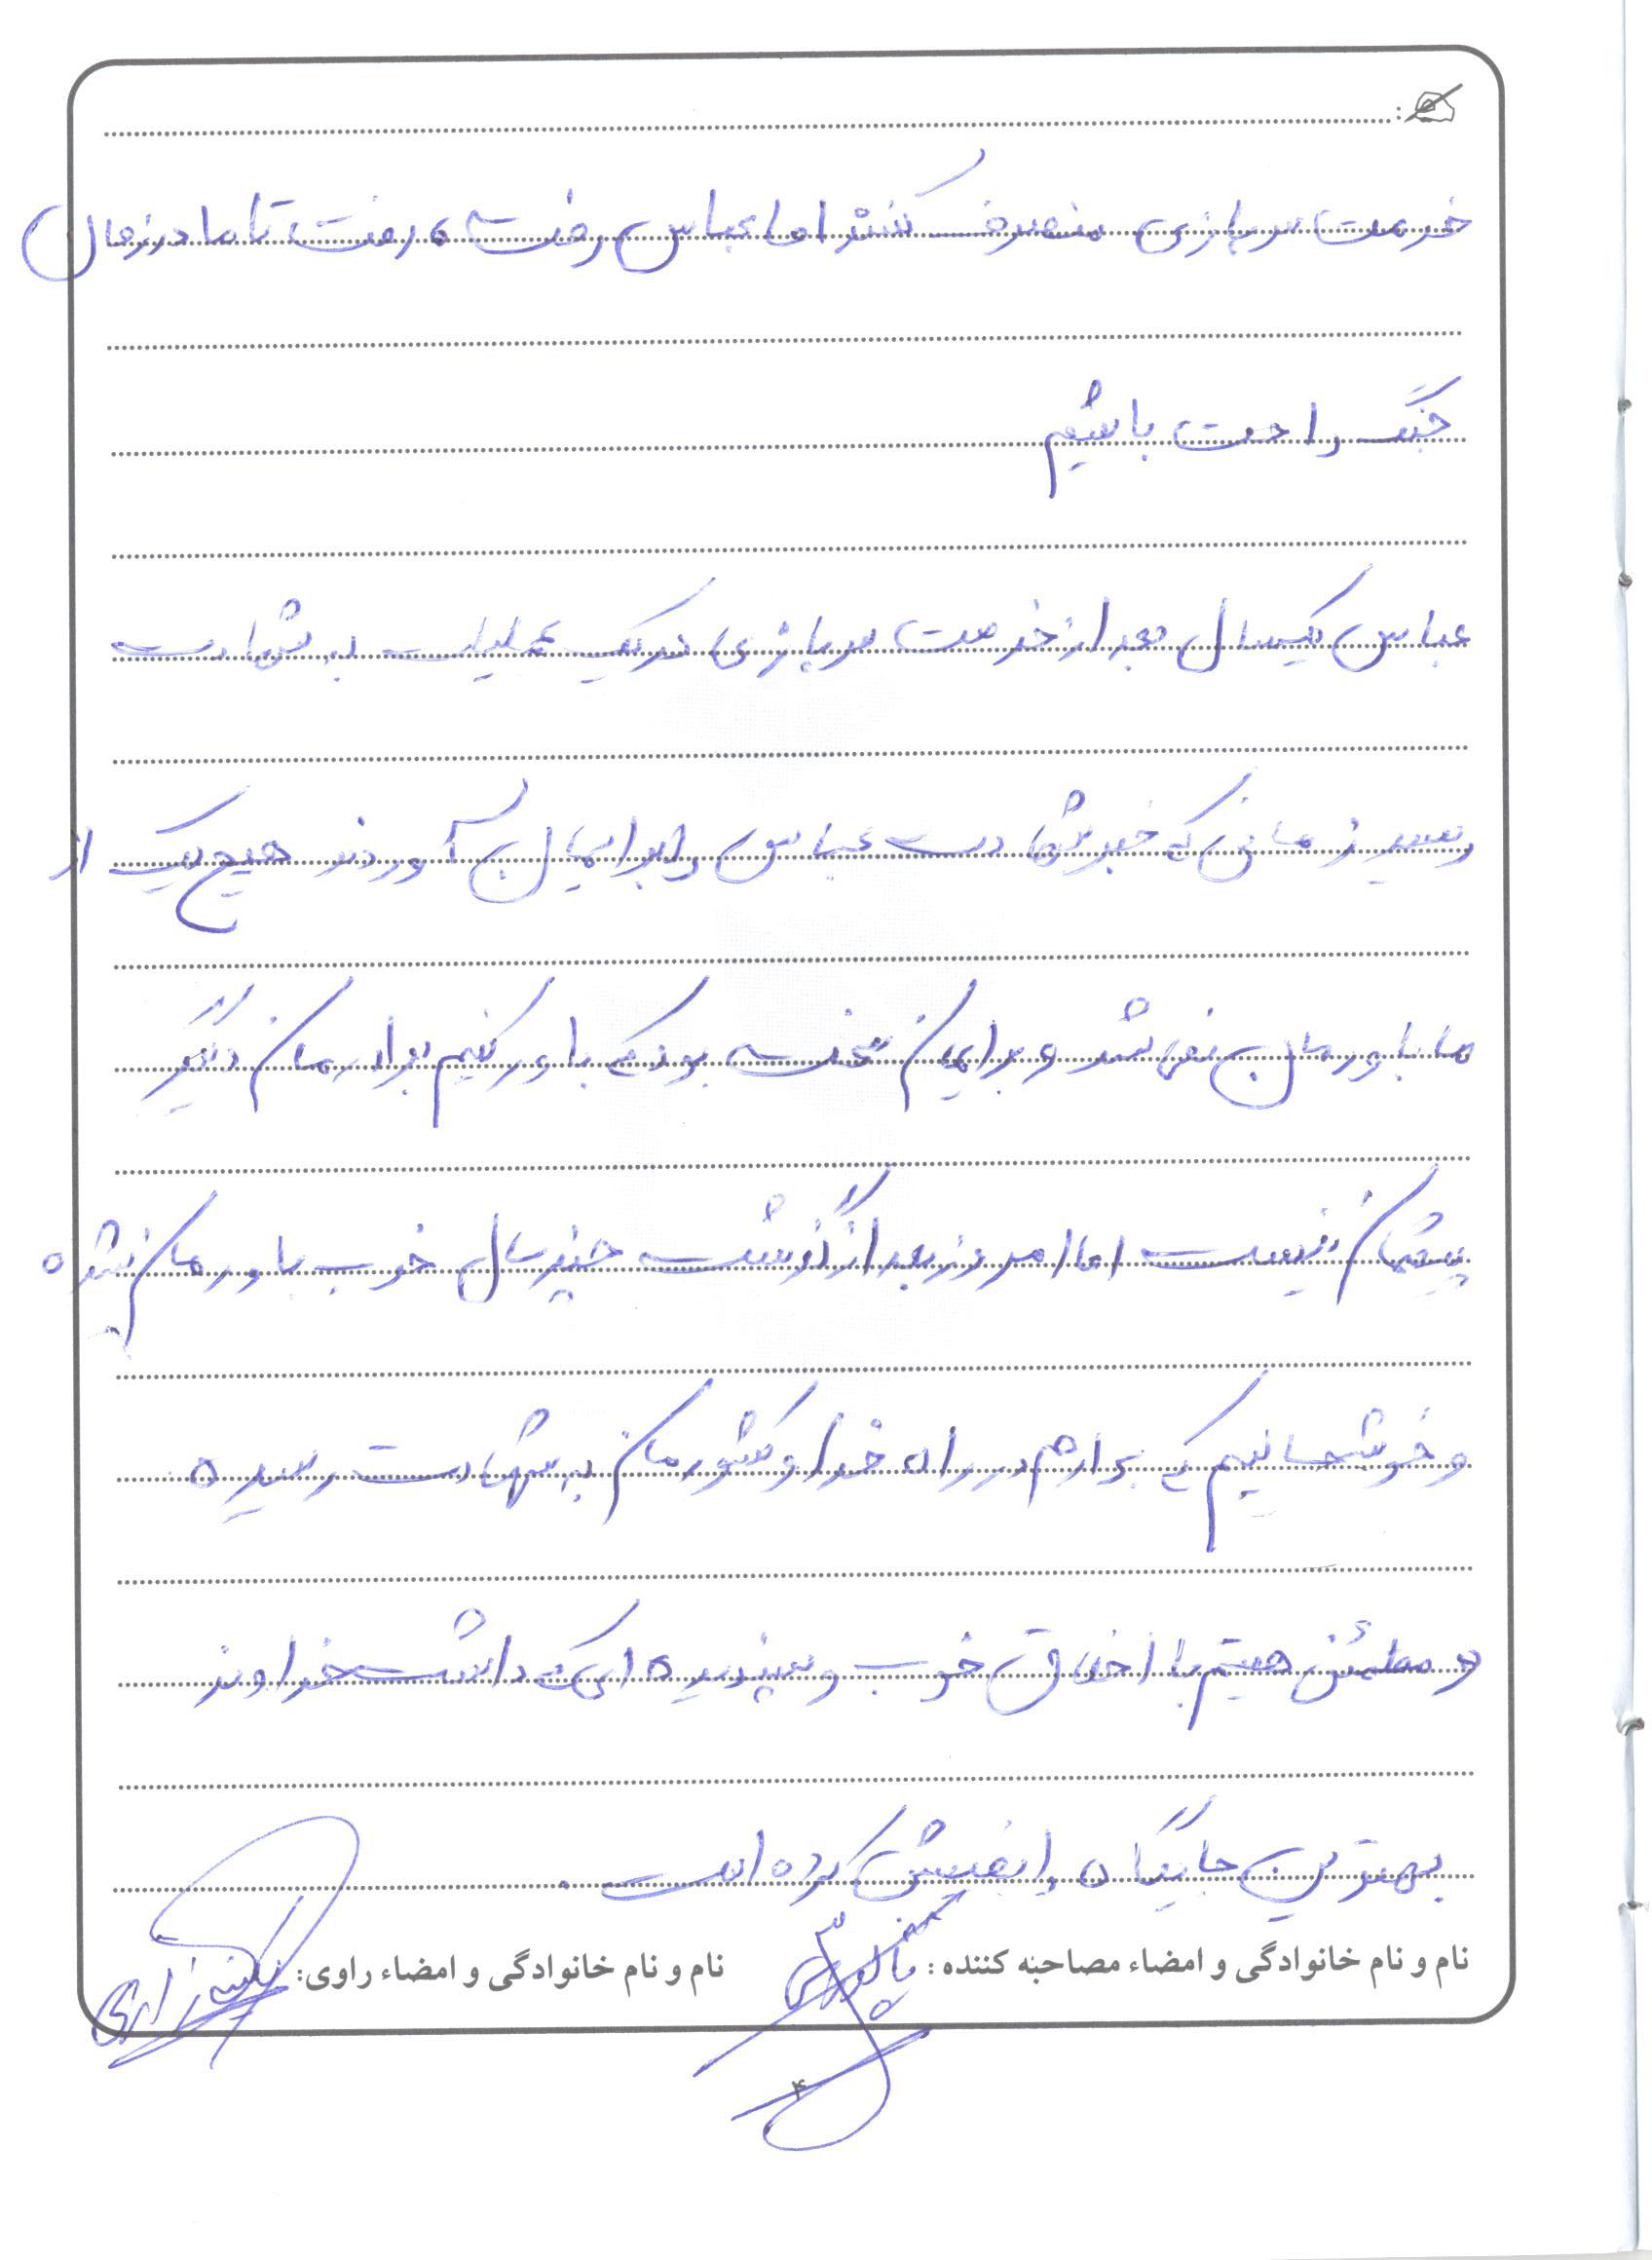 خدمت سربازی منصرف کنند اما عباس رفت، رفت تا ما در زمان
جنگ راحت باشیم
عباس یکسال بعد از خدمت سربازی در یک عملیات به شهادت
رسید زمانی که خبر شهادت عباس را برایمان آوردند هیچ یک از
ما باورمان نمی شد و برایمان سخت بود که باور کنیم برادرمان دیگر
پیشمان نیست اما امروز بعد از گذشت چند سال خوب باورمان شده
و خوشحالیم که برادرم در راه خدا و کشورمان به شهادت رسیده
و مطمئن هستم با اخلاق خوب و پسندیده ای که داشت خداوند
بهترین جایگاه را نصیبش کرده است.
نام و نام خانوادگی و امضاء مصاحبه کننده:
نام و نام خانوادگی و امضاء راوی:
۴